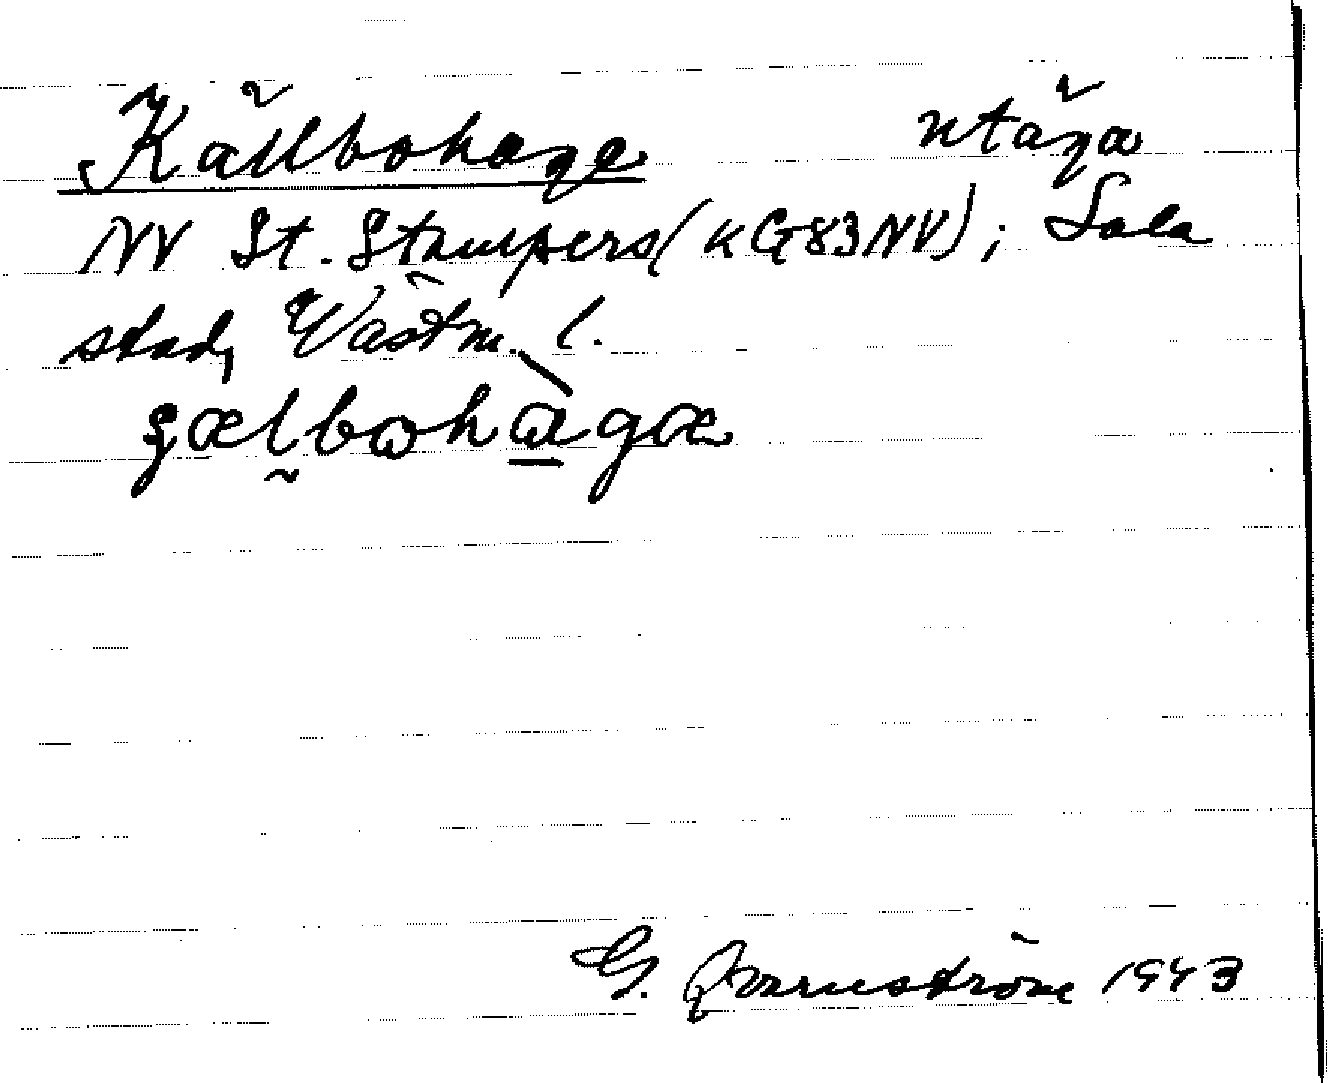 Källbohage utäga
NV St. Stampers (KG83NV); Sala
stad, Västm. l.
G. Qvarnström 1943